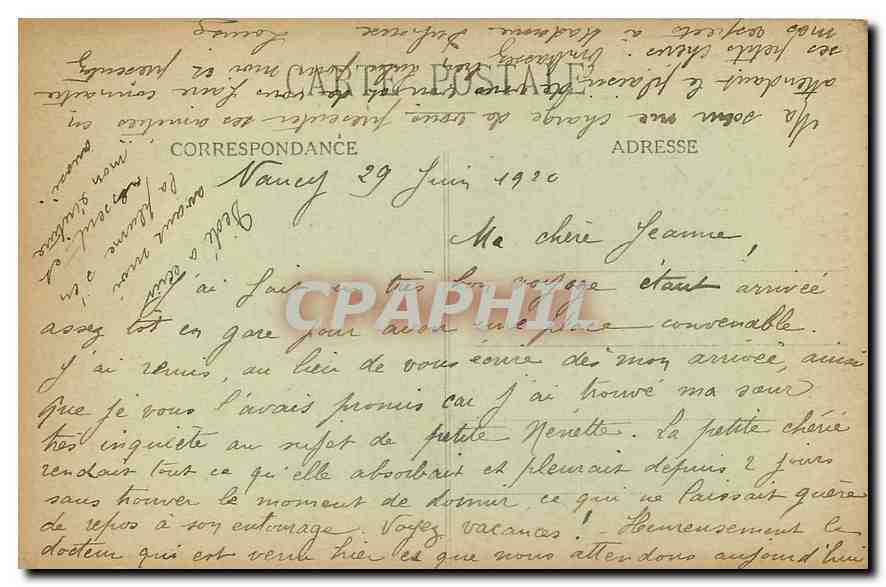 CARTE POSTALE
CORRESPONDANCE
ADRESSE
Nancy 29 Juin 1920
Ma chère Jeanne,
J'ai fait un très bon voyage étant arrivée
assez tôt en gare pour avoir une place convenable.
J'ai remis, au lieu de vous écrire dès mon arrivée, ainsi
que je vous l'avais promis car j'ai trouvé ma sœur
très inquiète au sujet de petite Nénette. La petite chérie
rendait tout ce qu'elle absorbait et pleurait depuis 2 jours
sans trouver le moment de dormir, ce qui ne laissait guère
de repos à son entourage. Voyez vacances! - Heureusement le
docteur qui est venu hier et que nous attendons aujourd'hui
Ma sœur me charge de vous présenter ses amitiés en
attendant le plaisir de vous faire connaître
ses petits chéris. Embrassez pour moi et présentez
mes respects à Madame
Louise
avant moi
la plume
mon écriture
aussi.
CPAPHIL